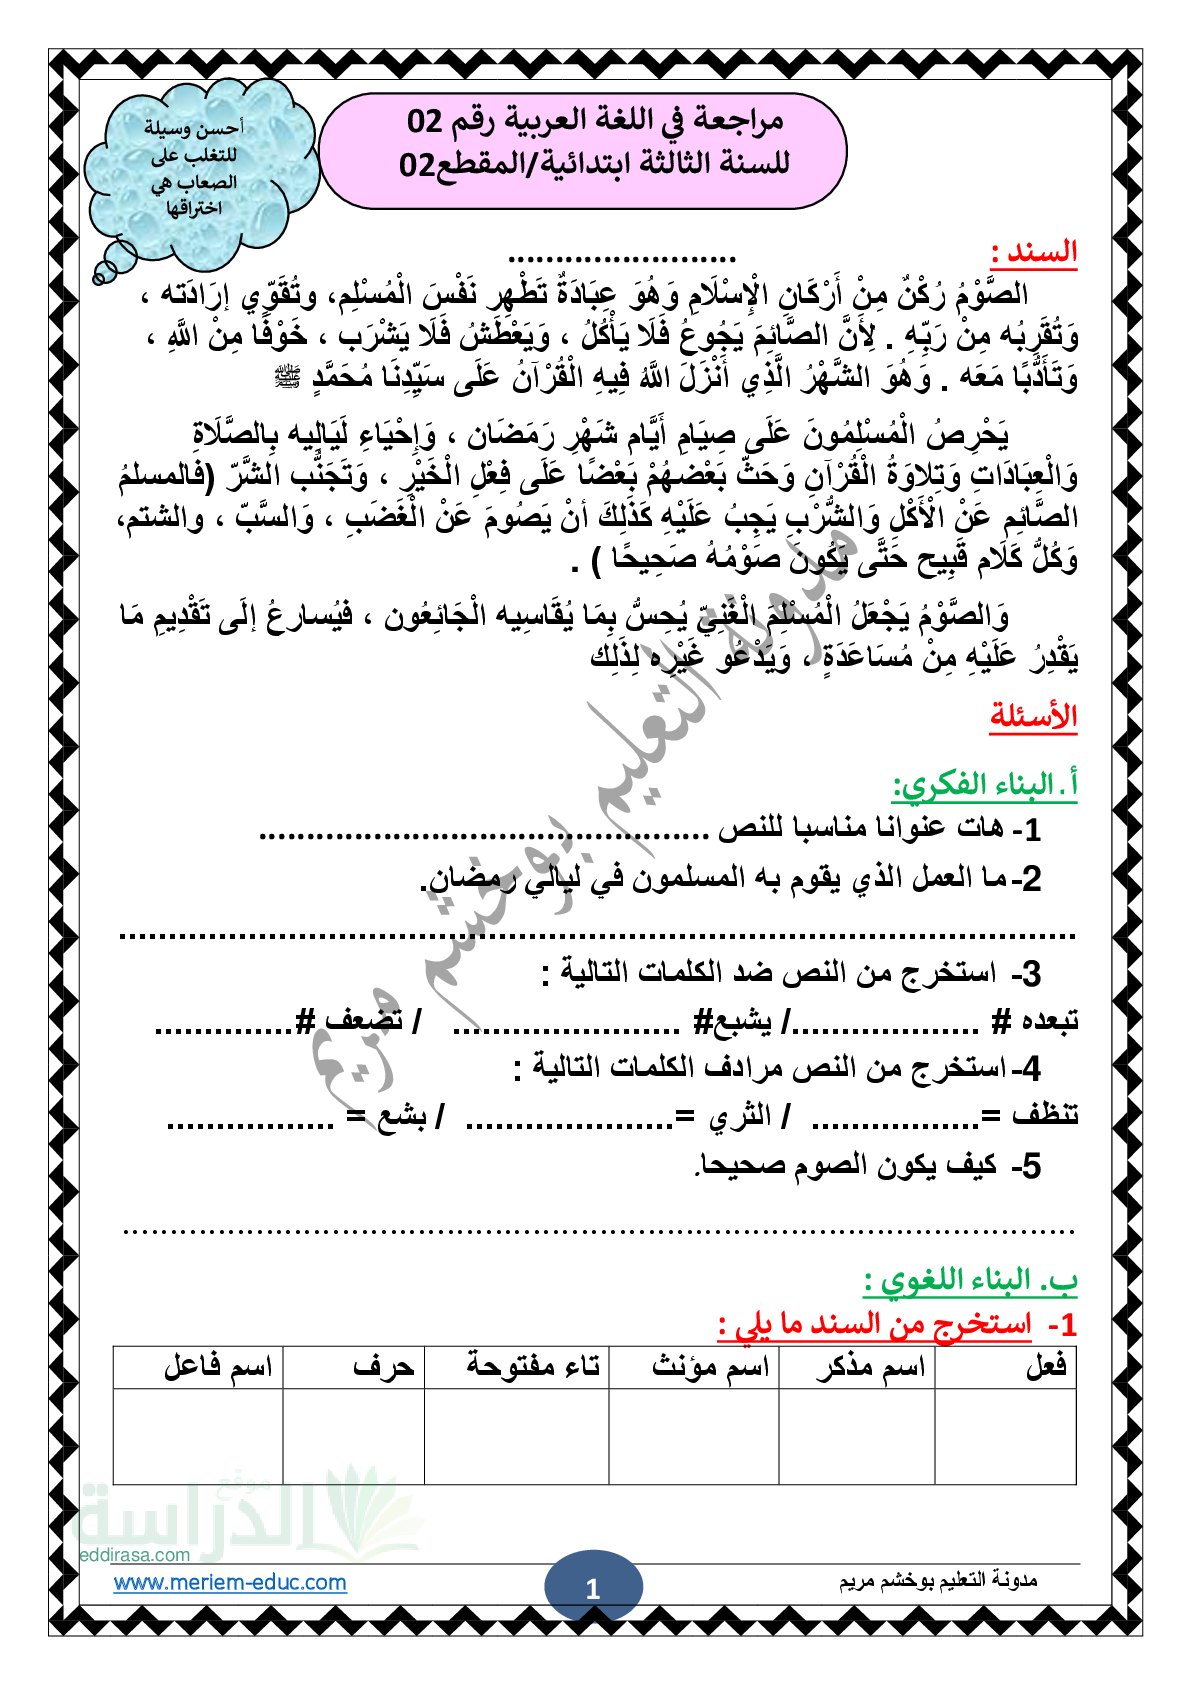 أحسن وسيلة
للتغلب على
الصعاب هي
اختراقها
مراجعة في اللغة العربية رقم 02
للسنة الثالثة ابتدائية/المقطع02
السند : ........................
الصَّوْمُ رُكْنٌ مِنْ أَرْكَانِ الْإِسْلَامِ وَهُوَ عِبَادَةٌ تَطْهِر نَفْسَ الْمُسْلِم، وتُقَوِّي إرَادَته ،
وَتُقَرِبُه مِنْ رَبِّهِ . لِأَنَّ الصَّائِمَ يَجُوعُ فَلَا يَأْكُلُ ، وَيَعْطَشُ فَلَا يَشْرَب ، خَوْفًا مِنْ اللَّهِ ،
وَتَأَدُّبًا مَعَه . وَهُوَ الشَّهْرُ الَّذِي أَنْزَلَ اللَّهُ فِيهِ الْقُرْآنُ عَلَى سَيِّدِنَا مُحَمَّدٍ ﷺ
يَحْرِصُ الْمُسْلِمُونَ عَلَى صِيَامِ أَيَّام شَهْرِ رَمَضَان ، وَإِحْيَاءِ لَيَالِيه بِالصَّلَاةِ
وَالْعِبَادَاتِ وَتِلاوَةُ الْقُرْآنِ وَحَثّ بَعْضهُمْ بَعْضًا عَلَى فِعْلِ الْخَيْرِ ، وَتَجَنُّب الشَّرّ (فَالمسلمُ
الصَّائِم عَنْ الْأَكْلِ وَالشُّرْبِ يَجِبُ عَلَيْهِ كَذَلِكَ أنْ يَصُومَ عَنْ الْغَضَبِ ، وَالسَّبّ ، والشتم،
وَكُلُّ كَلَام قَبِيح حَتَّى يَكُونَ صَوْمُهُ صَحِيحًا ) .
وَالصَّوْمُ يَجْعَلُ الْمُسْلِمَ الْغَنِيّ يُحِسُّ بِمَا يُقَاسِيه الْجَائِعُون ، فيُسارعُ إلَى تَقْدِيمِ مَا
يَقْدِرُ عَلَيْهِ مِنْ مُسَاعَدَةٍ ، وَيَدْعُو غَيْرِه لِذَلِك
الأسئلة
أ.البناء الفكري:
1- هات عنوانا مناسبا للنص ...............................................
2- ما العمل الذي يقوم به المسلمون في ليالي رمضان.
................................................................................................
3- استخرج من النص ضد الكلمات التالية :
تبعده # ...................../ يشبع# ....................... / تضعف #..............
4- استخرج من النص مرادف الكلمات التالية :
تنظف =................. / الثري =..................... / بشع = .................
5- كيف يكون الصوم صحيحا.
................................................................................................
ب. البناء اللغوي :
1- استخرج من السند ما يلي :
فعل اسم مذكر اسم مؤنث تاء مفتوحة حرف اسم فاعل
مدونة التعليم بوخشم مريم
موقع
الدراسة
eddirasa.com
www.meriem-educ.com 1 مدونة التعليم بوخشم مريم